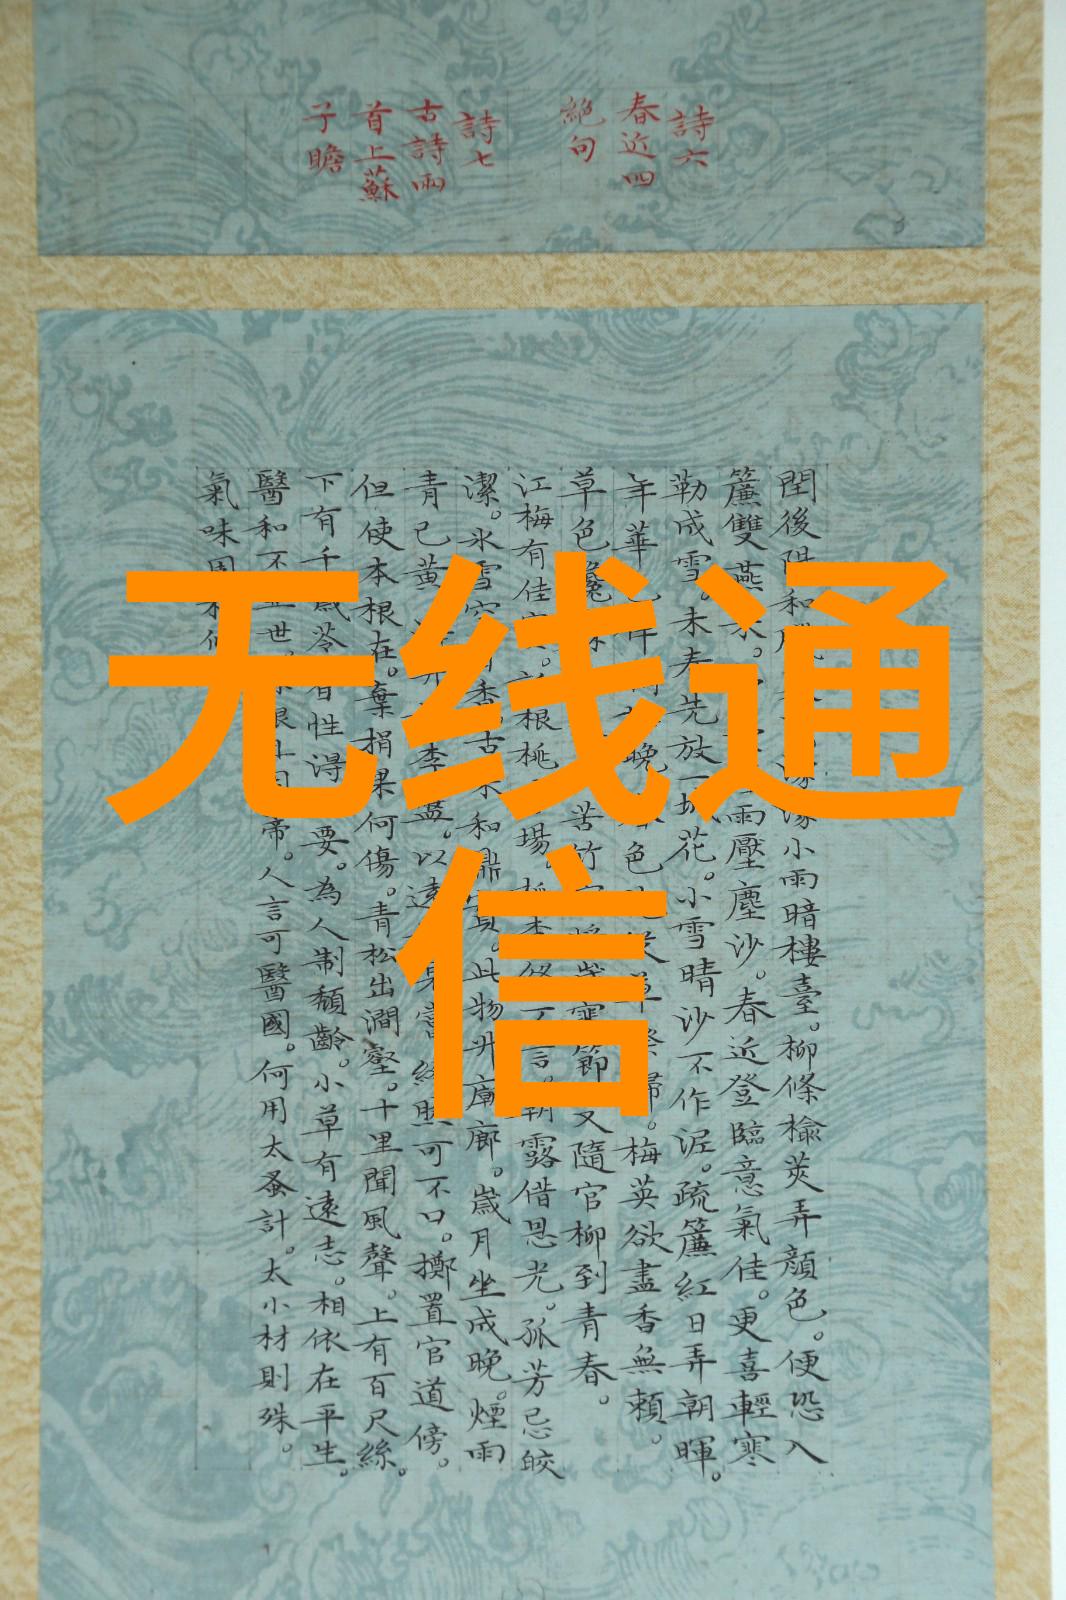 詩六
春近四
絕句
詩七
古詩兩
首上蘇
子瞻
閏後陽和濛小雨暗樓臺。柳條榆莢弄顏色。便恐入
簾雙燕雨壓塵沙。春近登臨意氣佳。更喜輕寒
勒成雪。未春先放一城花。小雪晴沙不作泥。疏簾紅日弄朝暉。
年華晚色從草際歸。梅英欲盡香無賴。
草色纔苦竹寒節又隨官柳到青春。
江梅有佳實。託根桃場。桃李終言。朝露借恩光。孤芳忌皎
潔。冰雪空自香。古來和鼎實。此物升廟廊。歲月坐成晚。煙雨
青已黃李盤。以遠見嘗終然可不口。擲置官道傍。
但使本根在。棄捐果何傷。青松出澗壑。十里聞風聲。上有百尺絲。
下有千歲苓。自性得要。為人制頹齡。小草有遠志。相依在平生。
醫和不世。根且固蒂。人言可醫國。何用太蚤計。大小材則殊。
氣味固
无线通
信